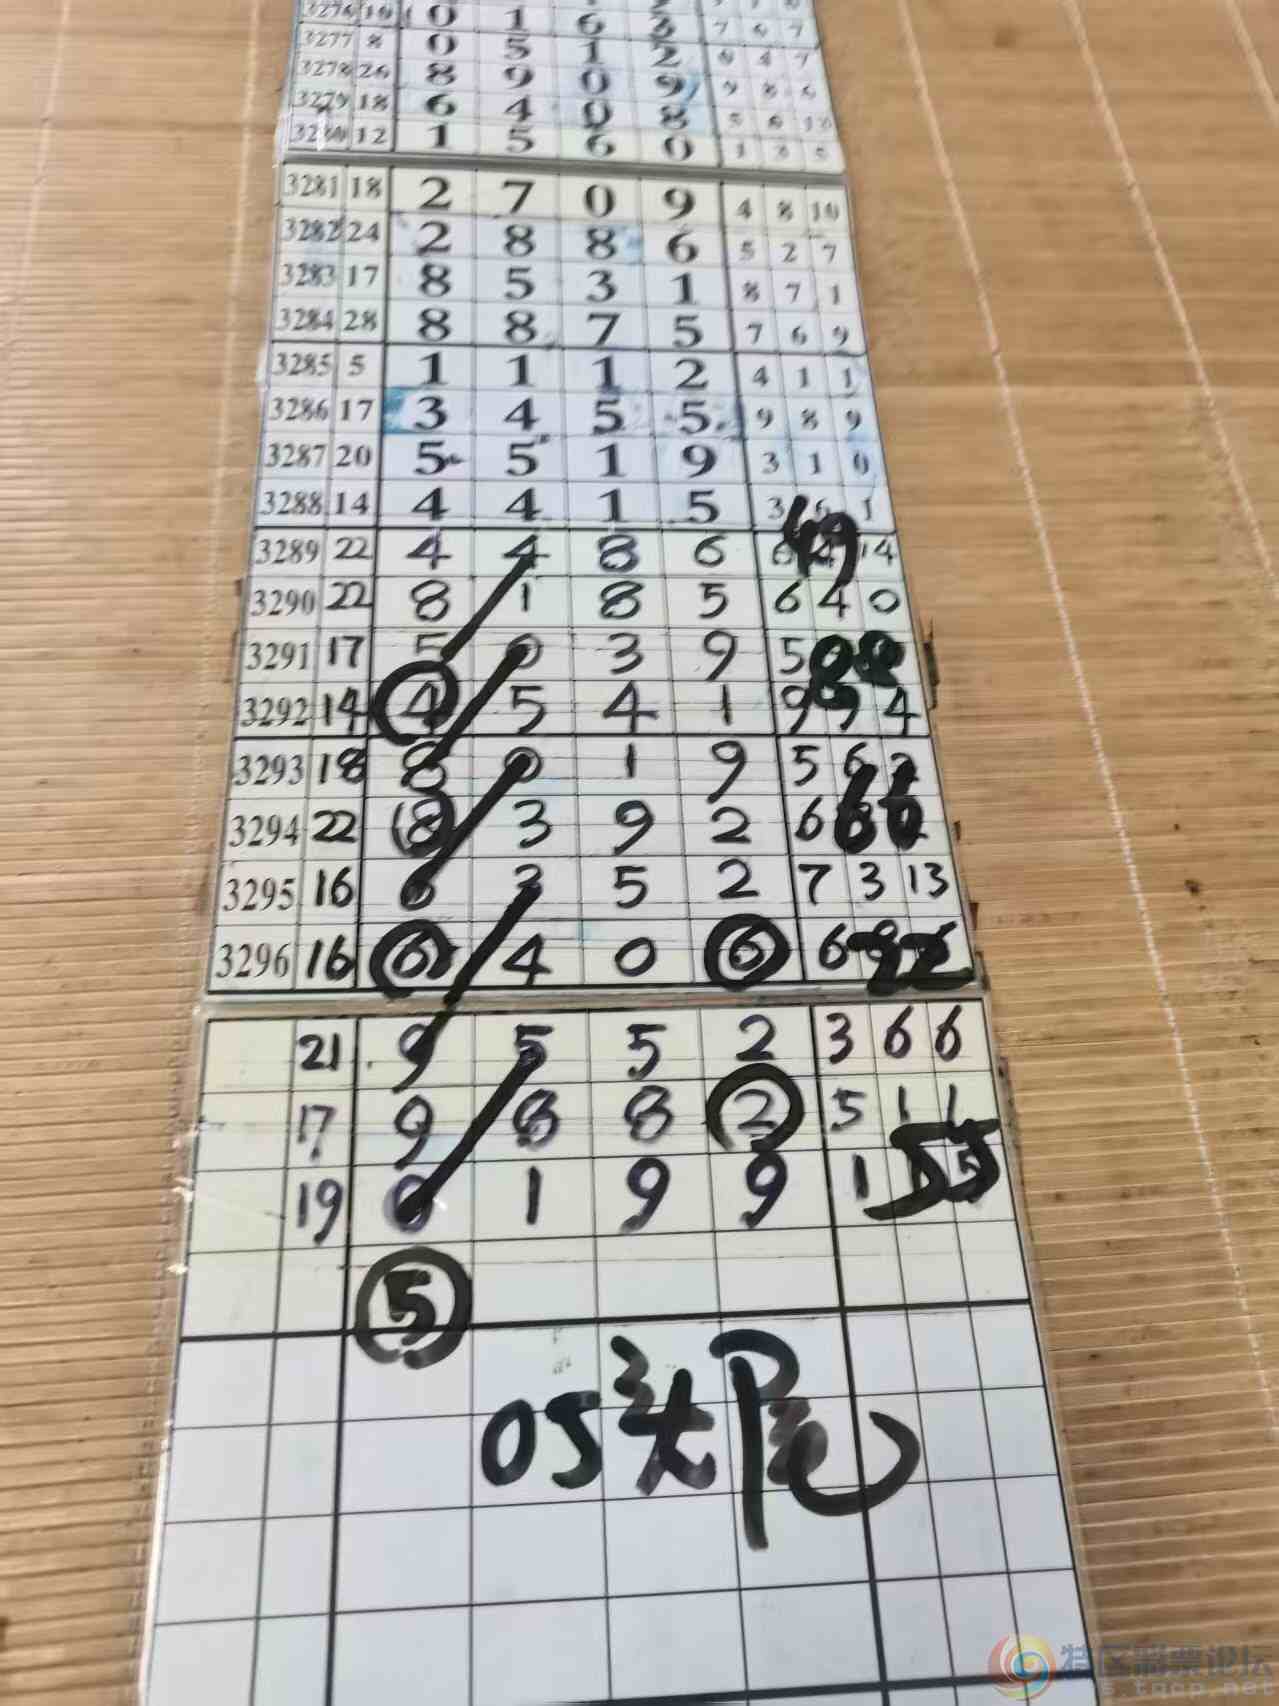 3276 19 0 1 6 3 7 6 7
3277 8 0 5 1 2 9 4 7
3278 26 8 9 0 9 9 8 6
3279 18 6 4 0 8 5 6 10
3280 12 1 5 6 0 1 8 5
3281 18 2 7 0 9 4 8 10
3282 24 2 8 8 6 5 2 7
3283 17 8 5 3 1 8 7 1
3284 28 8 8 7 5 7 6 9
3285 5 1 1 1 2 4 1 1
3286 17 3 4 5 5 9 8 9
3287 20 5 5 1 9 3 1 0
3288 14 4 4 1 5 3 6 1
49
3289 22 4 4 8 6 6 4 14
3290 22 8 1 8 5 6 4 0
3291 17 5 0 3 9 5
3292 14 4 5 4 1 9 9 4
3293 18 8 0 1 9 5 6 2
3294 22 8 3 9 2 6
3295 16 6 3 5 2 7 3 13
3296 16 6 4 0 6 6
21 9 5 5 2 3 6 6
17 9 8 8 2 5 1 1
19 0 1 9 9 1 55
5
05头尾
特区彩票论坛
s.tqcp.net